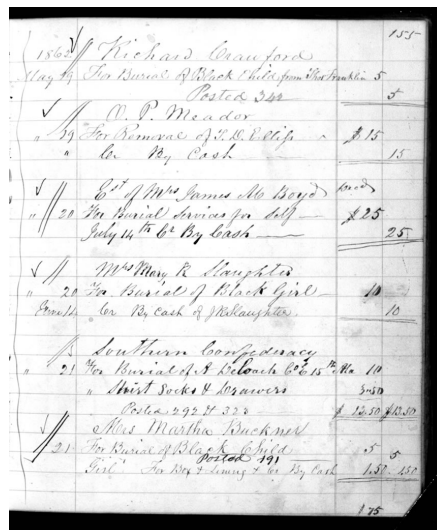 155
1863 // Richard Crawford
May 19 For Burial of Black Child from Thos Franklin 5
Posted 342 5
// O. P. Meador
" 29 For Removal of T. D. Ellis $15
" Cr By Cash 15
// Est of Mrs James M Boyd
" 20 For Burial Services for Self $25
July 14th Cr By Cash 25
// Mrs Mary R Slaughter
" 20 For Burial of Black Girl 10
June 14 Cr By Cash of Slaughter 10
// Southern Confederacy
" 21 For Burial of A DeLoach Co E 15th Ala 10
" Shirt Socks & Drawers 3.50
Posted 292 & 323 $ 13.50 $13.50
// Mrs Martha Buckner
" 21 For Burial of Black Child 5 5
Posted 191
Girl For Box & Lining & Cr By Cash 1.50 1.50
$75